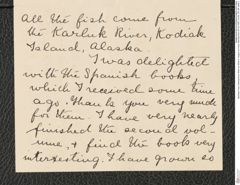 All the fish come from
the Karluk River, Kodiak
Island, Alaska.
I was delighted
with the Spanish books
which I received some time
ago. Thank you very much
for them. I have very nearly
finished the second vol-
ume, & find the books very
interesting. I have grown so